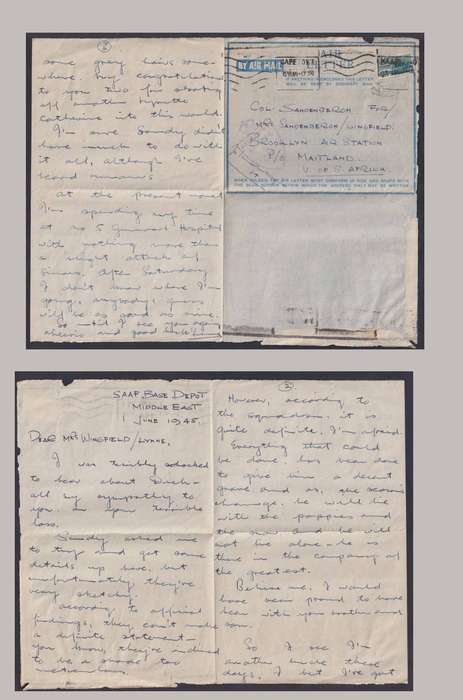 ②
some grey hairs some-
where. My congratulations
to you two for starting
off another
Catherine into this world.
I'm sure Sandy didn't
have much to do with
it all, although I've
heard rumours
At the present moment
I'm spending my time
at No 5 General Hospital
with nothing more than
a slight attack of
Sinus. After Saturday
I don't know where I'm
going, anybody's guess
will be as good as mine.
So until I see you again
cheerio and good luck!!
BY AIR MAIL
AIR
LETTER
IF ANYTHING IS ENCLOSED THIS LETTER
WILL BE SENT BY ORDINARY MAIL
COL SANDENBERGH FOR/
MRS SANDENBERGH/WINGFIELD.
BROOKLYN AIR STATION
P/O MAITLAND.
U. OF S. AFRICA.
SAAF BASE DEPOT
MIDDLE EAST
1 JUNE 1945.
DEAR MRS WINGFIELD/LYNNE,
I was terribly shocked
to hear about
all my sympathy to
you in your terrible
loss.
Sandy asked me
to try and get some
details up here, but
unfortunately they're
very sketchy.
According to official
findings, they can't make
a definite statement –
you know, they're inclined
to be a shade too
meticulous.
②
However, according to
the squadron, it is
quite definite, I'm afraid.
Everything that could
be done has been done
to give him a decent
grave and as the seasons
change, he will lie
with the poppies and
the snow and he will
not be alone – he is
there in the company of
the greatest.
Believe me, I would
have been proud to have
been with you
son.
So I see I'm
another uncle these
days, I bet I've got